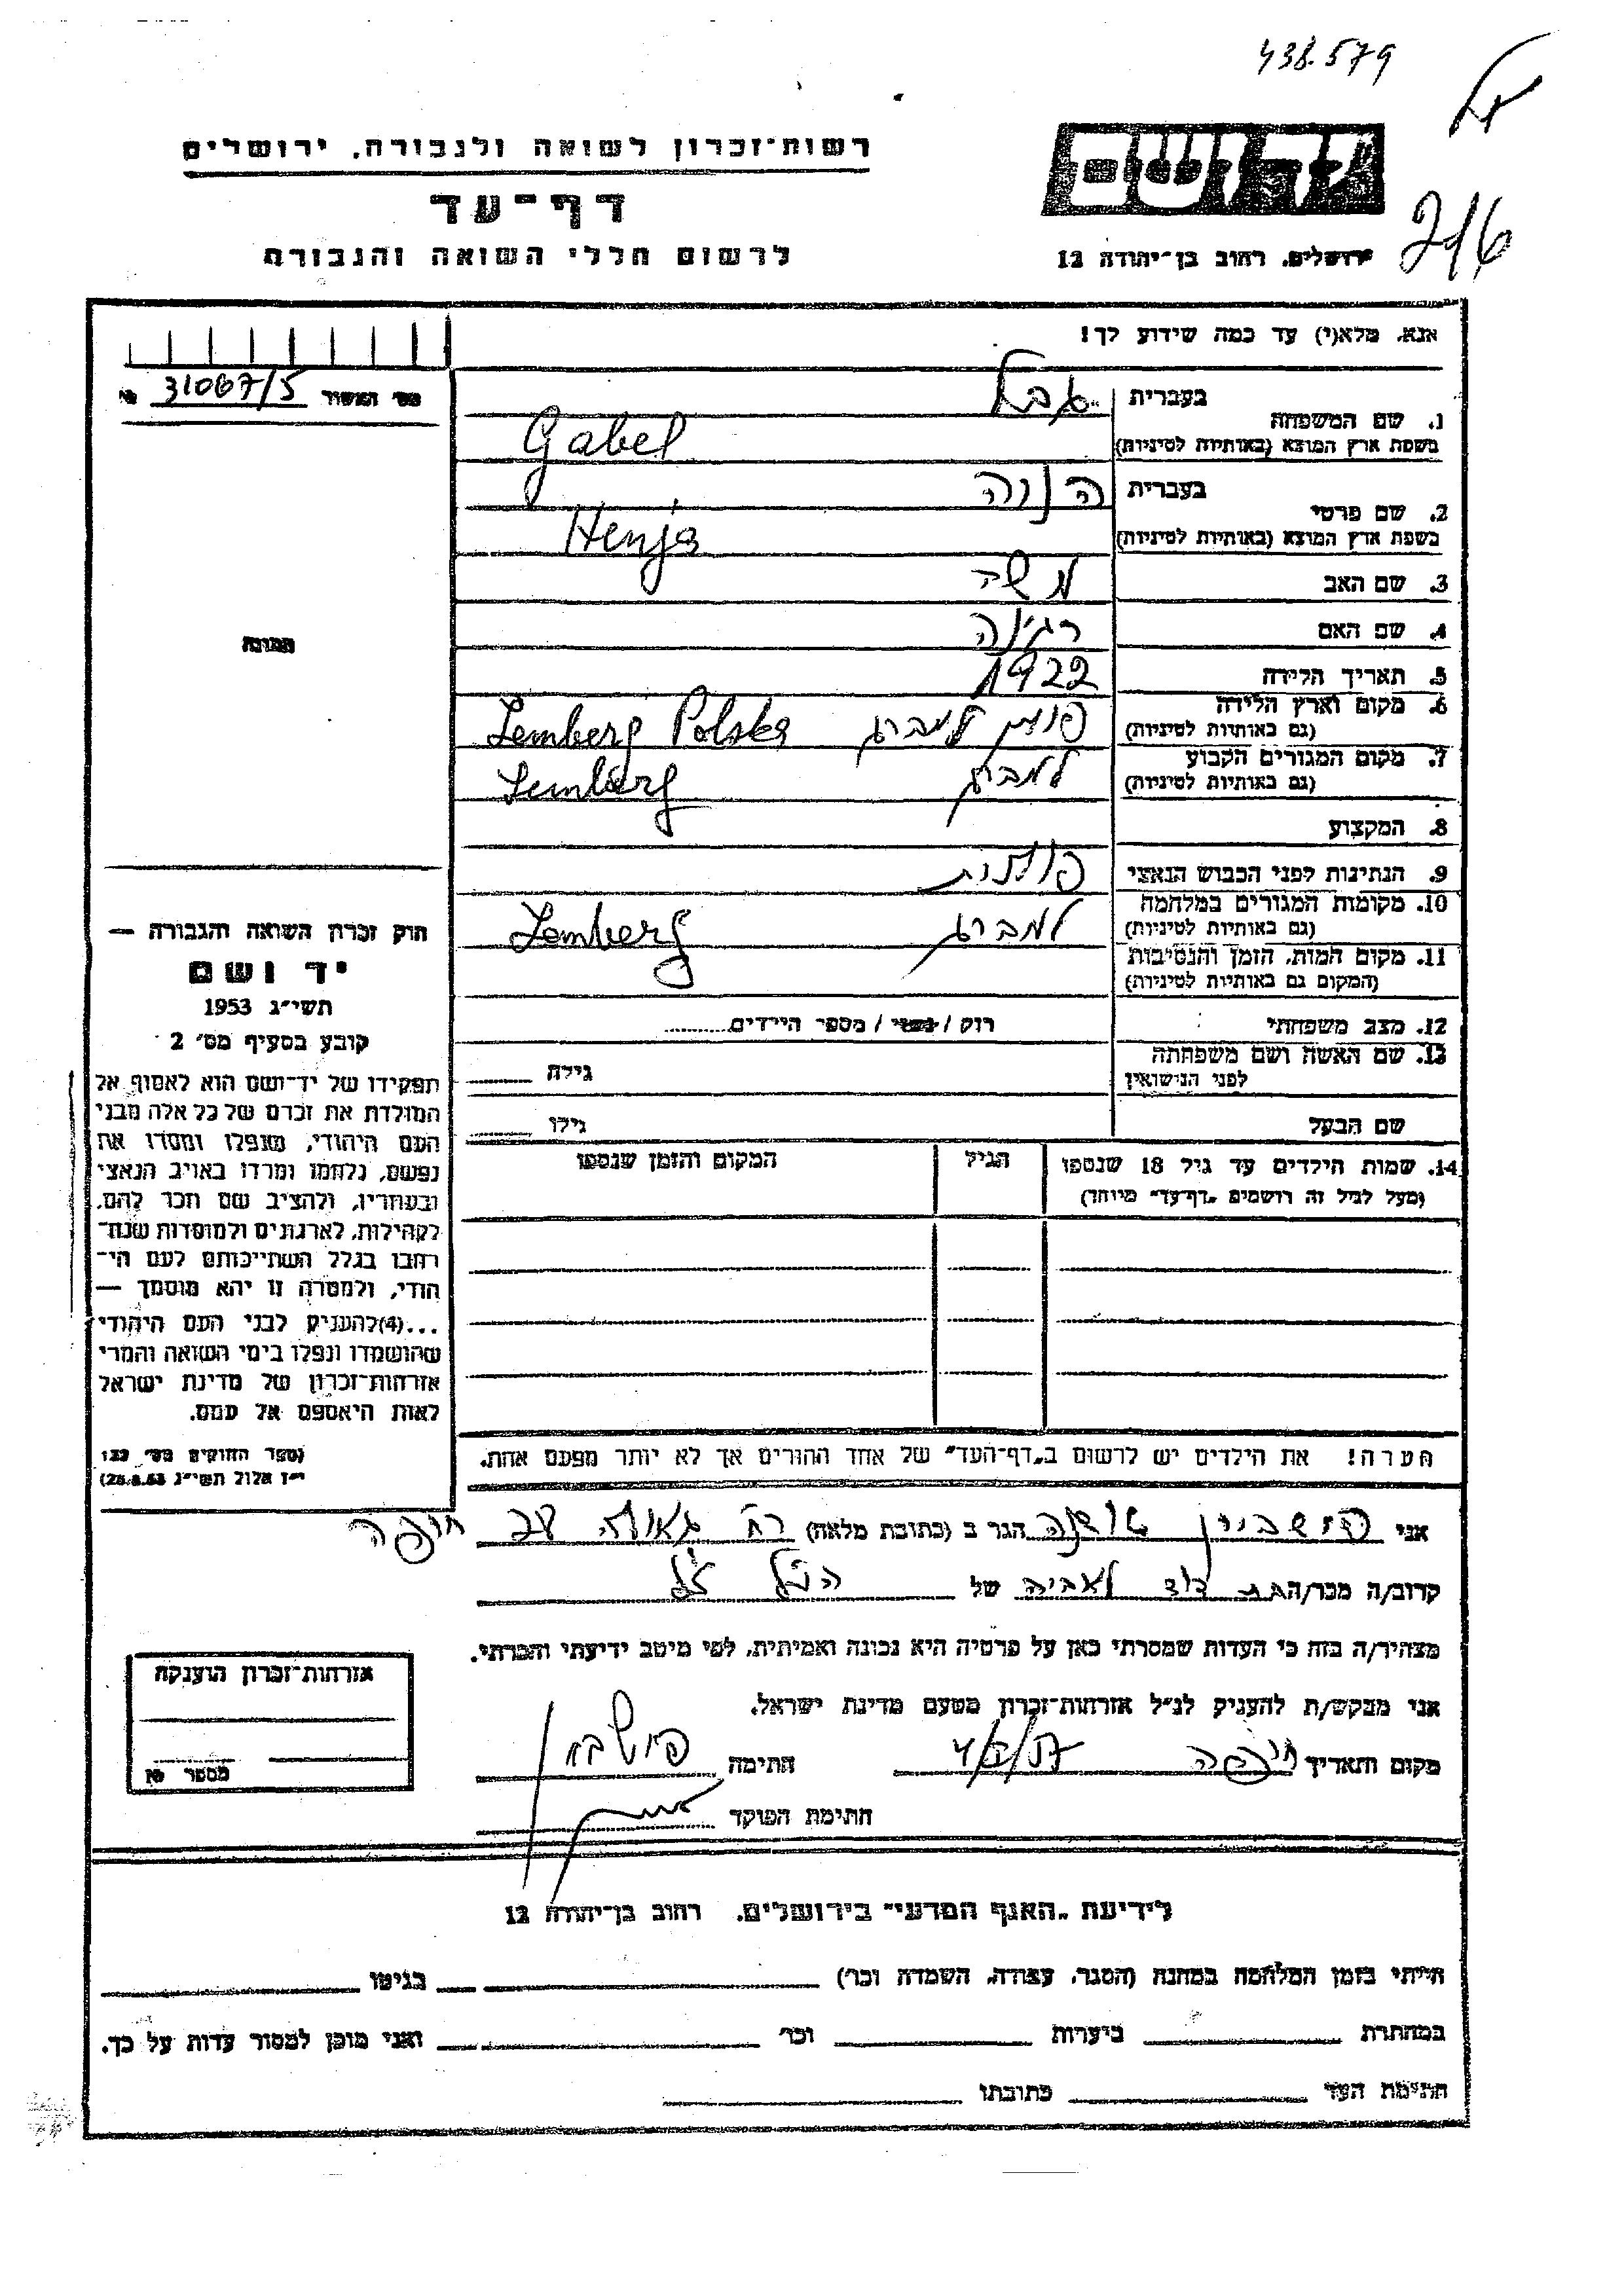 438.579
רשות־זכרון לשואה ולגבורה, ירושלים
דף־עד
לרשום חללי השואה והגבורה
ירושלים, רחוב בן־יהודה 12
216
אנא, מלא(י) עד כמה שידוע לך!
מס' המשור № 31067/5
בעברית גבל
1. שם המשפחה
בשפת ארץ המוצא (באותיות לטיניות) Gabel
בעברית הניה
2. שם פרטי
בשפת ארץ המוצא (באותיות לטיניות) Henja
3. שם האב משה
4. שם האם רגינה
התמונה
5. תאריך הלידה 1922
6. מקום וארץ הלידה
(גם באותיות לטיניות) פולין למברג Lemberg Polska
7. מקום המגורים הקבוע
(גם באותיות לטיניות) למברג Lemberg
8. המקצוע
9. הנתינות לפני הכבוש הנאצי פולנית
10. מקומות המגורים במלחמה
(גם באותיות לטיניות) למברג Lemberg
11. מקום המות, הזמן והנסיבות
(המקום גם באותיות לטיניות)
12. מצב משפחתי רוק / נשוי / מספר הילדים........
13. שם האשה ושם משפחתה
לפני הנישואין גילה
שם הבעל גילו
14. שמות הילדים עד גיל 18 שנספו הגיל המקום והזמן שנספו
(מעל לגיל זה רושמים "דף־עד" מיוחד)
חוק זכרון השואה והגבורה —
יד ושם
תשי"ג 1953
קובע בסעיף מס' 2
תפקידו של יד־ושם הוא לאסוף אל
המולדת את זכרם של כל אלה מבני
העם היהודי, שנפלו ומסרו את
נפשם, נלחמו ומרדו באויב הנאצי
ובעוזריו, ולהציב שם וזכר להם,
לקהילות, לארגונים ולמוסדות שנח־
רבו בגלל השתייכותם לעם הי־
הודי, ולמטרה זו יהא מוסמך —
...(4) להעניק לבני העם היהודי
שהושמדו ונפלו בימי השואה והמרי
אזרחות־זכרון של מדינת ישראל
לאות היאספם אל עמם.
(ספר החוקים מס' 132
י"ז אלול תשי"ג 28.8.53)
הערה! את הילדים יש לרשום ב"דף־העד" של אחד ההורים אך לא יותר מפעם אחת.
אני שושנה הגר ב (כתובת מלאה) רח' גאולה חיפה
קרוב/ה מכר/ה בת דוד לאביה של הנ"ל ז"ל
מצהיר/ה בזה כי העדות שמסרתי כאן על פרטיה היא נכונה ואמיתית, לפי מיטב ידיעתי והכרתי.
אני מבקש/ת להעניק לנ"ל אזרחות־זכרון מטעם מדינת ישראל.
מקום ותאריך חיפה חתימה
חתימת הפוקד
אזרחות־זכרון הוענקה
מספר №
לידיעת "האגף המדעי" בירושלים, רחוב בן־יהודה 12
הייתי בזמן המלחמה במחנה (הסגר, עבודה, השמדה וכו') בגיטו
במחתרת ביערות וכו' ואני מוכן למסור עדות על כך.
חתימת העד כתובתו